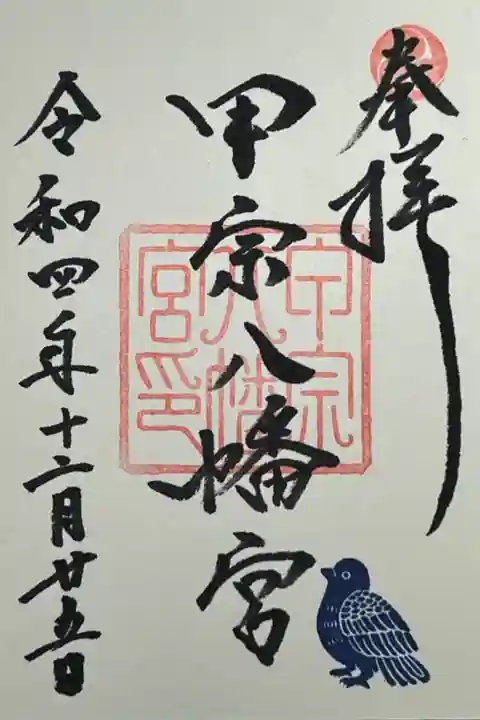 奉拝
甲宗八幡宮
甲宗
八幡
宮印
令和四年十二月廿五日